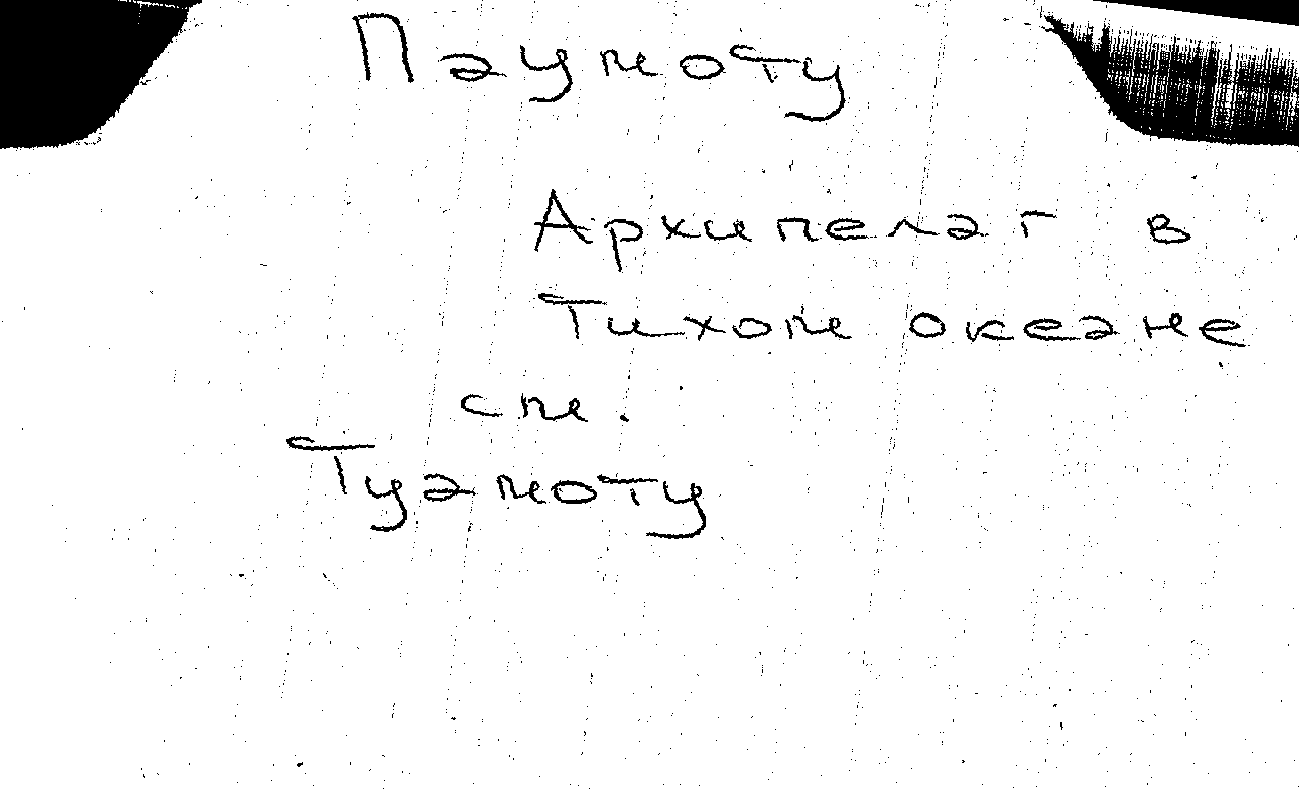 Паумоту
Архипелаг в
Тихом океане
см.
Туамоту